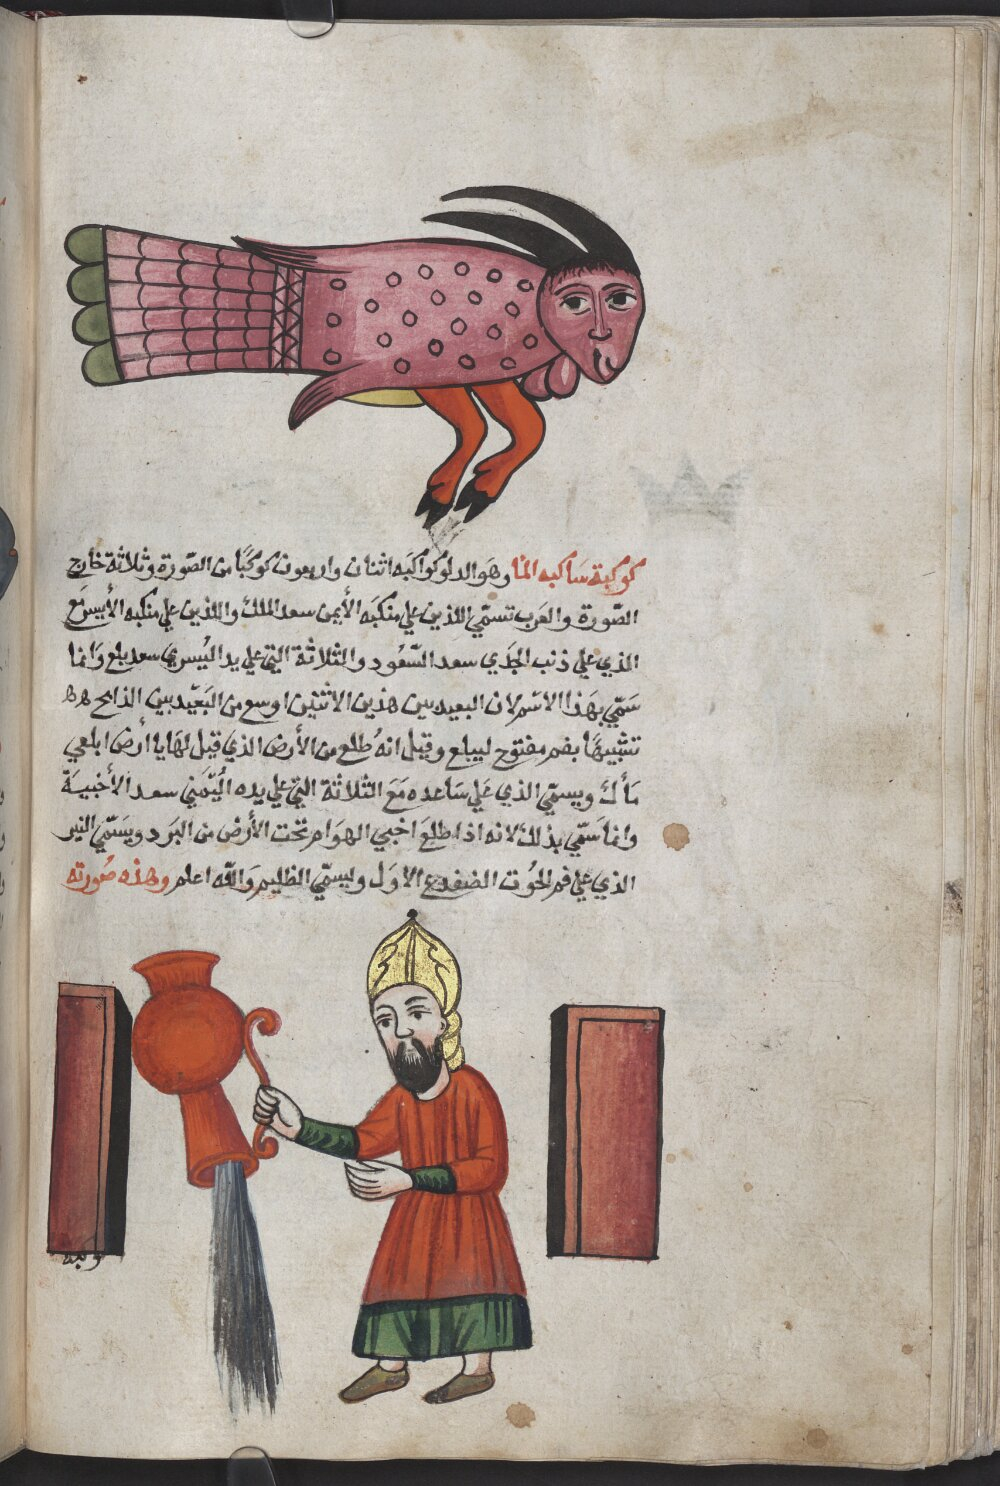 كوكبة ساكبه الما وهو الدلو كواكبه اثنان واربعون كوكبًا من الصّورة وثلاثة خارج
الصّورة والعرب تسمّي اللذين علي منكبه الأيمن سعد الملك واللذين علي منكبه الأيسر مع
الذي علي ذنب الجَدي سعد السّعُود والثلاثة التي علي يد اليُسري سعد بلع وَانما
سَمّي بهَذا الاسْم لان البعيد بين هذين الاثنين اوسع من البَعْيد بين الذابح
تشبيهًا بفم مفتوح ليبلع وقيل انهُ طلع من الأرض الذي قيل لهَا يا أرض ابلعي
مَأك ويسمّي الذي عَلي سَاعده مَعَ الثلاثة التي علي يده اليُمني سعد الأخبيَة
وانما سَمّي بذلك لانه اذا طلعَ اخبي الهوَام تحت الأرض من البَرد ويسَمّي النير
الذي علي فم الحُوت الضفدع الاوَل وليسمّي الظليم وَالله اعلم وهذه صُورته